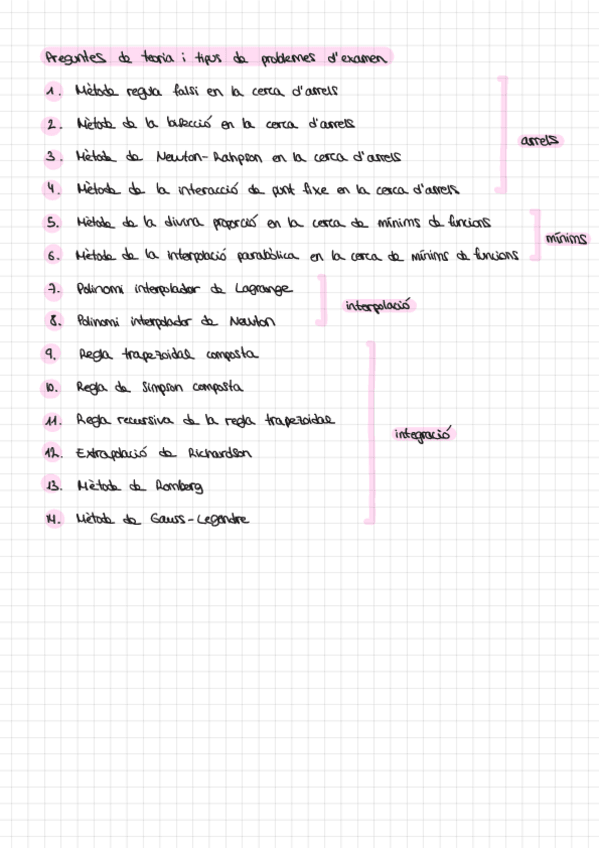 Preguntes de teoria i tipus de problemes d'examen
1. Mètode regula falsi en la cerca d'arrels
2. Mètode de la bisecció en la cerca d'arrels
3. Mètode de Newton-Rahpson en la cerca d'arrels
4. Mètode de la interacció de punt fixe en la cerca d'arrels
arrels
5. Mètode de la divina proporció en la cerca de mínims de funcions
6. Mètode de la interpolació parabòlica en la cerca de mínims de funcions
mínims
7. Polinomi interpolador de Lagrange
8. Polinomi interpolador de Newton
interpolació
9. Regla trapezoidal composta
10. Regla de Simpson composta
11. Regla recursiva de la regla trapezoidal
12. Extrapolació de Richardson
13. Mètode de Romberg
14. Mètode de Gauss-Legendre
integració